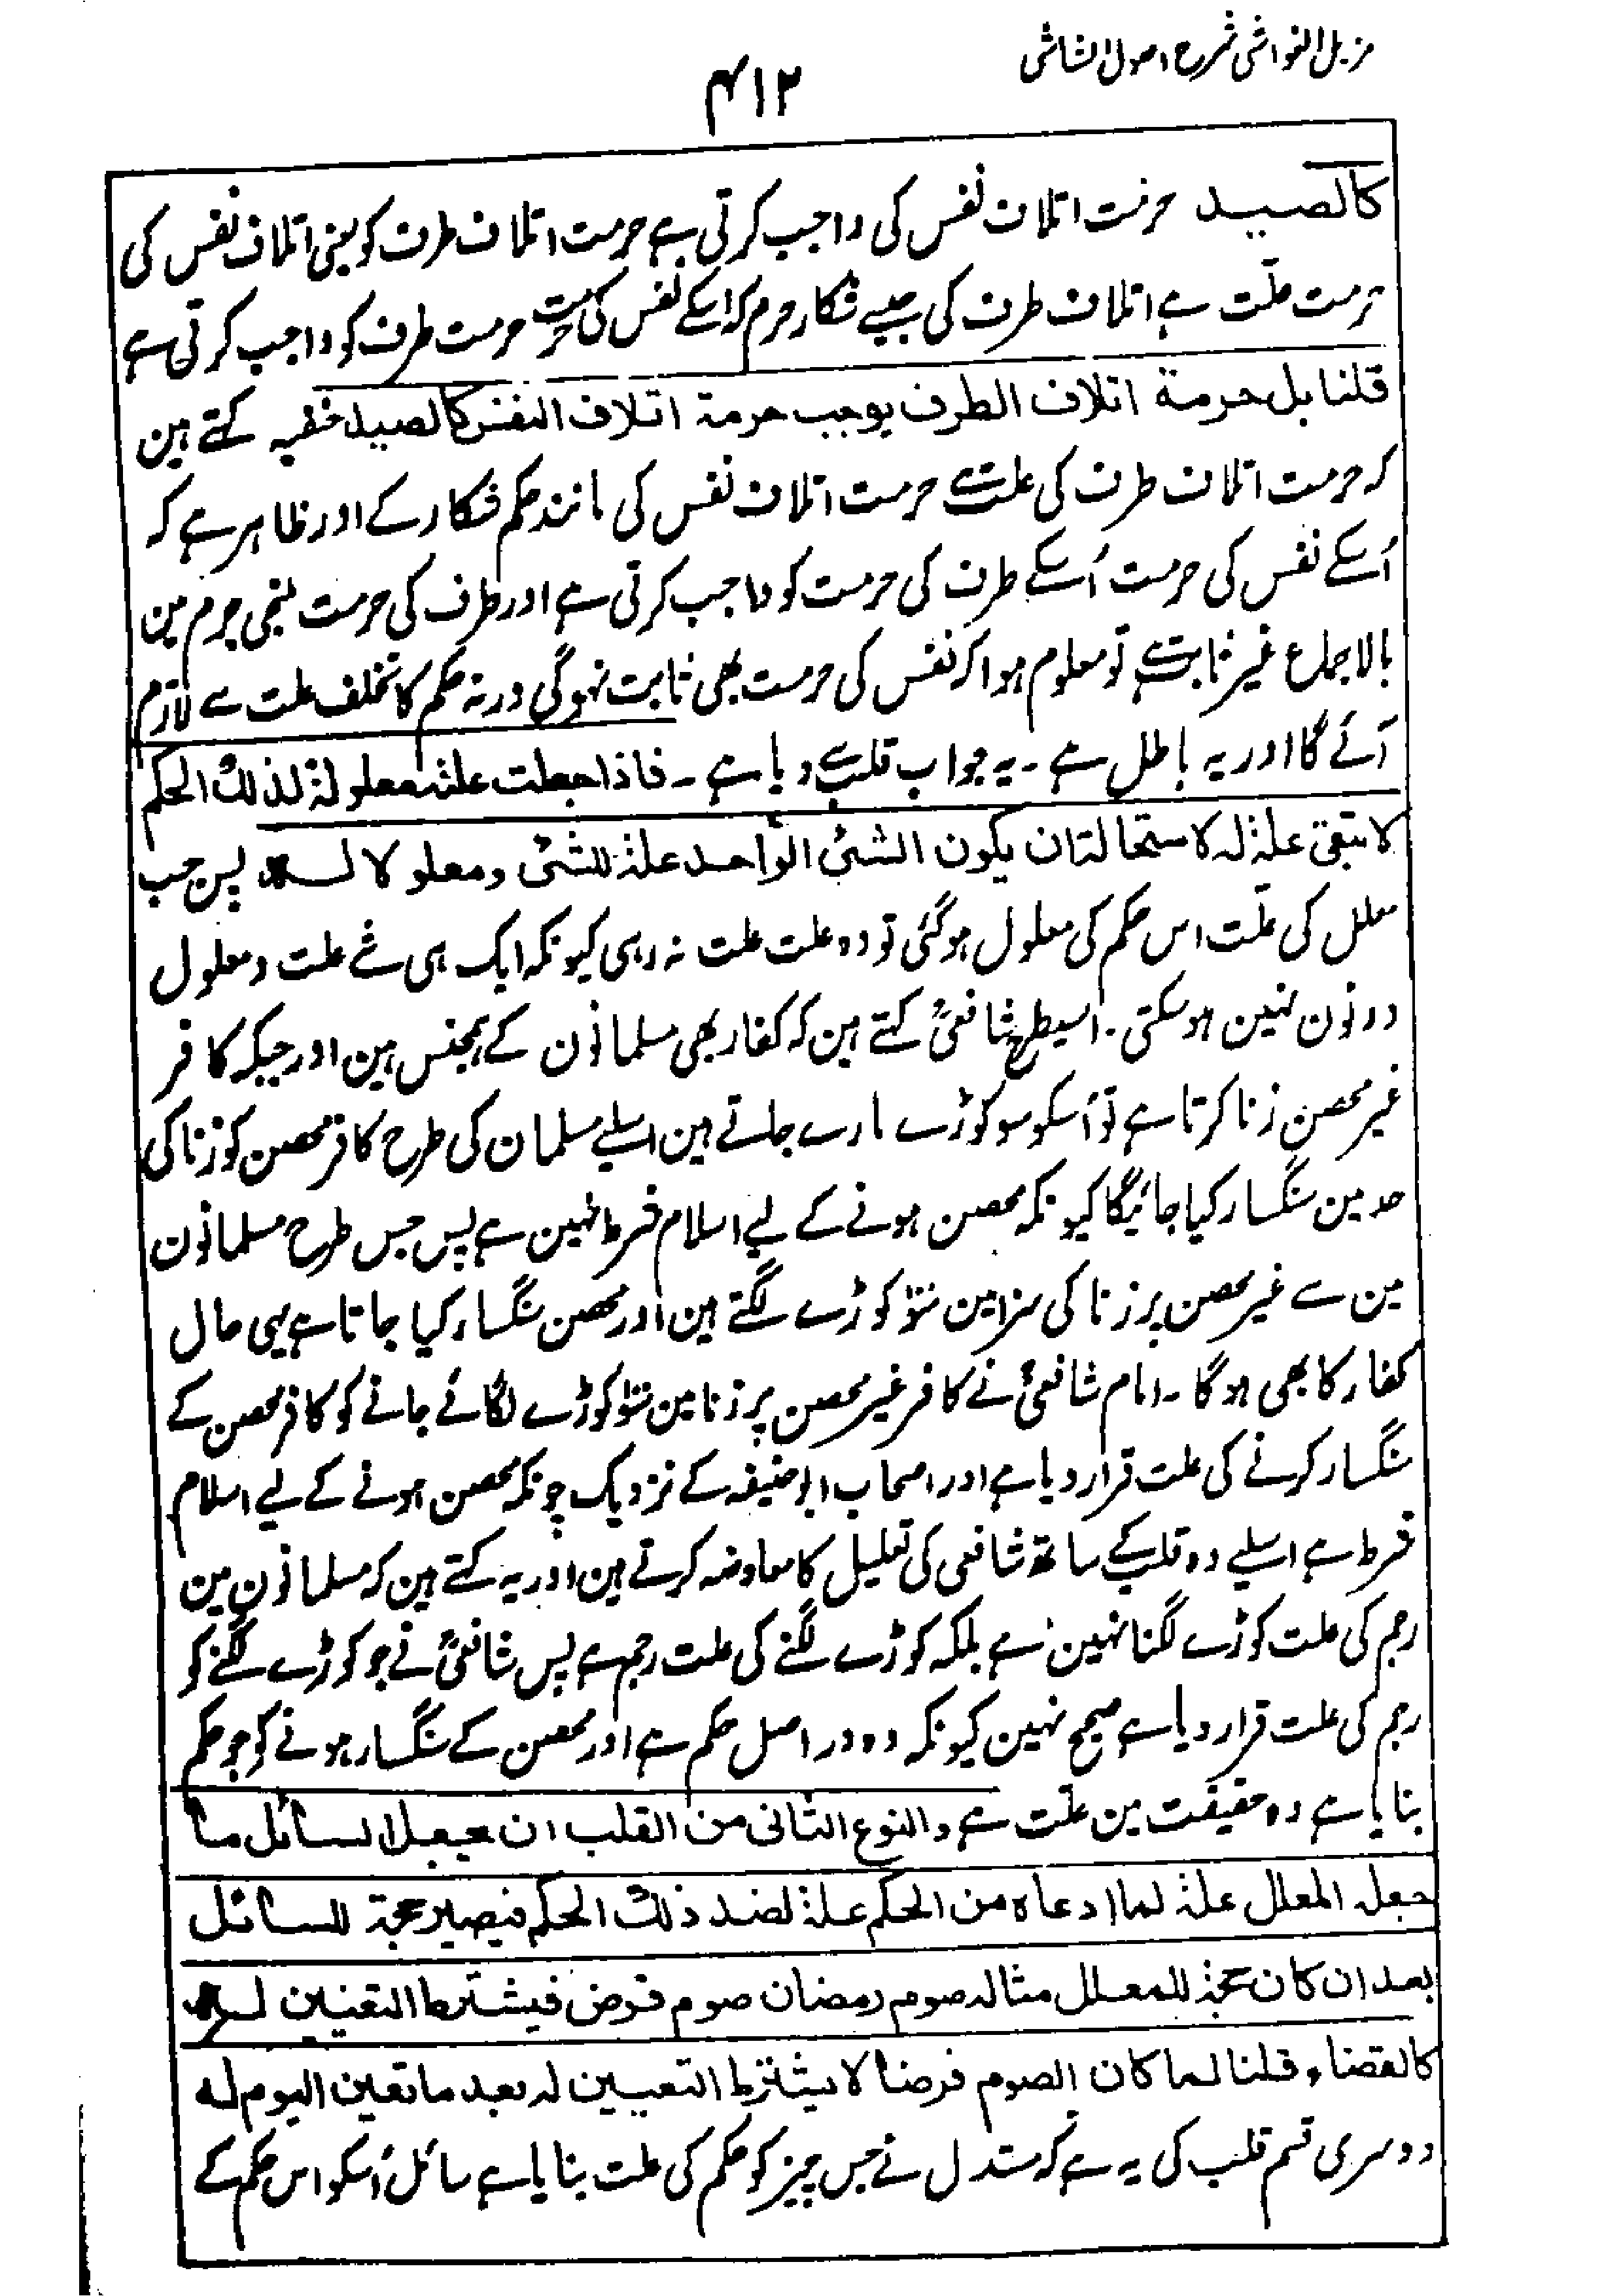 مزیل الغواشی شرح اصول الشاشی
۴۱۲
کالصید حرمت اتلاف نفس کی واجب کرتی ہے حرمت اتلاف طرف کو یعنی اتلاف نفس کی
حرمت علّت ہے اتلاف طرف کی جیسے شکار حرم کہ اسکے نفس کی حرمت حرمت طرف کو واجب کرتی ہے
قلنا بل حرمة اتلاف الطرف یوجب حرمة اتلاف النفس کالصید حنفیہ کہتے ہین
کہ حرمت اتلاف طرف کی علت ہے حرمت اتلاف نفس کی مانند حکم شکار کے اور ظاہر ہے کہ
اُسکے نفس کی حرمت اُسکے طرف کی حرمت کو واجب کرتی ہے اور طرف کی حرمت ملتجی حرم مین
بالاجماع غیر ثابت ہے تو معلوم ہوا کہ نفس کی حرمت بھی ثابت نہوگی ورنہ حکم کا تخلف علت سے لازم
آئے گا اور یہ باطل ہے ۔ یہ جواب قلب سے دیا ہے ۔ فاذا جعلت علته معلولة لذلك الحکم
لا تبقی علة له لاستحالة ان یکون الشئ الواحد علة للشئ ومعلولا له پس جب
معلل کی علّت اس حکم کی معلول ہوگئی تو وہ علت علت نہ رہی کیونکہ ایک ہی شے علت و معلول
دونون نہین ہوسکتی ۔ اسیطرح شافعیؒ کہتے ہین کہ کفار بھی مسلمانون کے ہمجنس ہین اور جبکہ کافر
غیر محصن زنا کرتا ہے تو اُسکو سو کوڑے مارے جاتے ہین اسلیے مسلمان کی طرح کافر محصن کو زنا کی
حد مین سنگسار کیا جائیگا کیونکہ محصن ہونے کے لیے اسلام شرط نہین ہے پس جس طرح مسلمانون
مین سے غیر محصن پر زنا کی سزا مین سَو کوڑے لگتے ہین اور محصن سنگسار کیا جاتا ہے یہی حال
کفار کا بھی ہوگا ۔ امام شافعیؒ نے کافر غیر محصن پر زنا مین سَو کوڑے لگائے جانے کو کافر محصن کے
سنگسار کرنے کی علت قرار دیا ہے اور اصحاب ابو حنیفہ کے نزدیک چونکہ محصن ہونے کے لیے اسلام
شرط ہے اسلیے وہ قلب کے ساتھ شافعی کی تعلیل کا معارضہ کرتے ہین اور یہ کہتے ہین کہ مسلمانون مین
رجم کی علت کوڑے لگنا نہین ہے بلکہ کوڑے لگنے کی علت رجم ہے پس شافعیؒ نے جو کوڑے لگنے کو
رجم کی علت قرار دیا ہے صحیح نہین کیونکہ وہ در اصل حکم ہے اور محصن کے سنگسار ہونے کو جو حکم
بنایا ہے وہ حقیقت مین علّت ہے والنوع الثانی من القلب ان یجعل السائل ما
جعله المعلل علة لما ادعاه من الحکم علة لضد ذلك الحکم فیصیر حجة للسائل
بعد ان کان حجة للمعلل مثاله صوم رمضان صوم فرض فیشترط التعیین له
کالقضاء قلنا لما کان الصوم فرضا لا یشترط التعیین له بعد ما تعین الیوم له
دوسری قسم قلب کی یہ ہے کہ مستدل نے جس چیز کو حکم کی علت بنایا ہے سائل اُسکو اس حکم کے